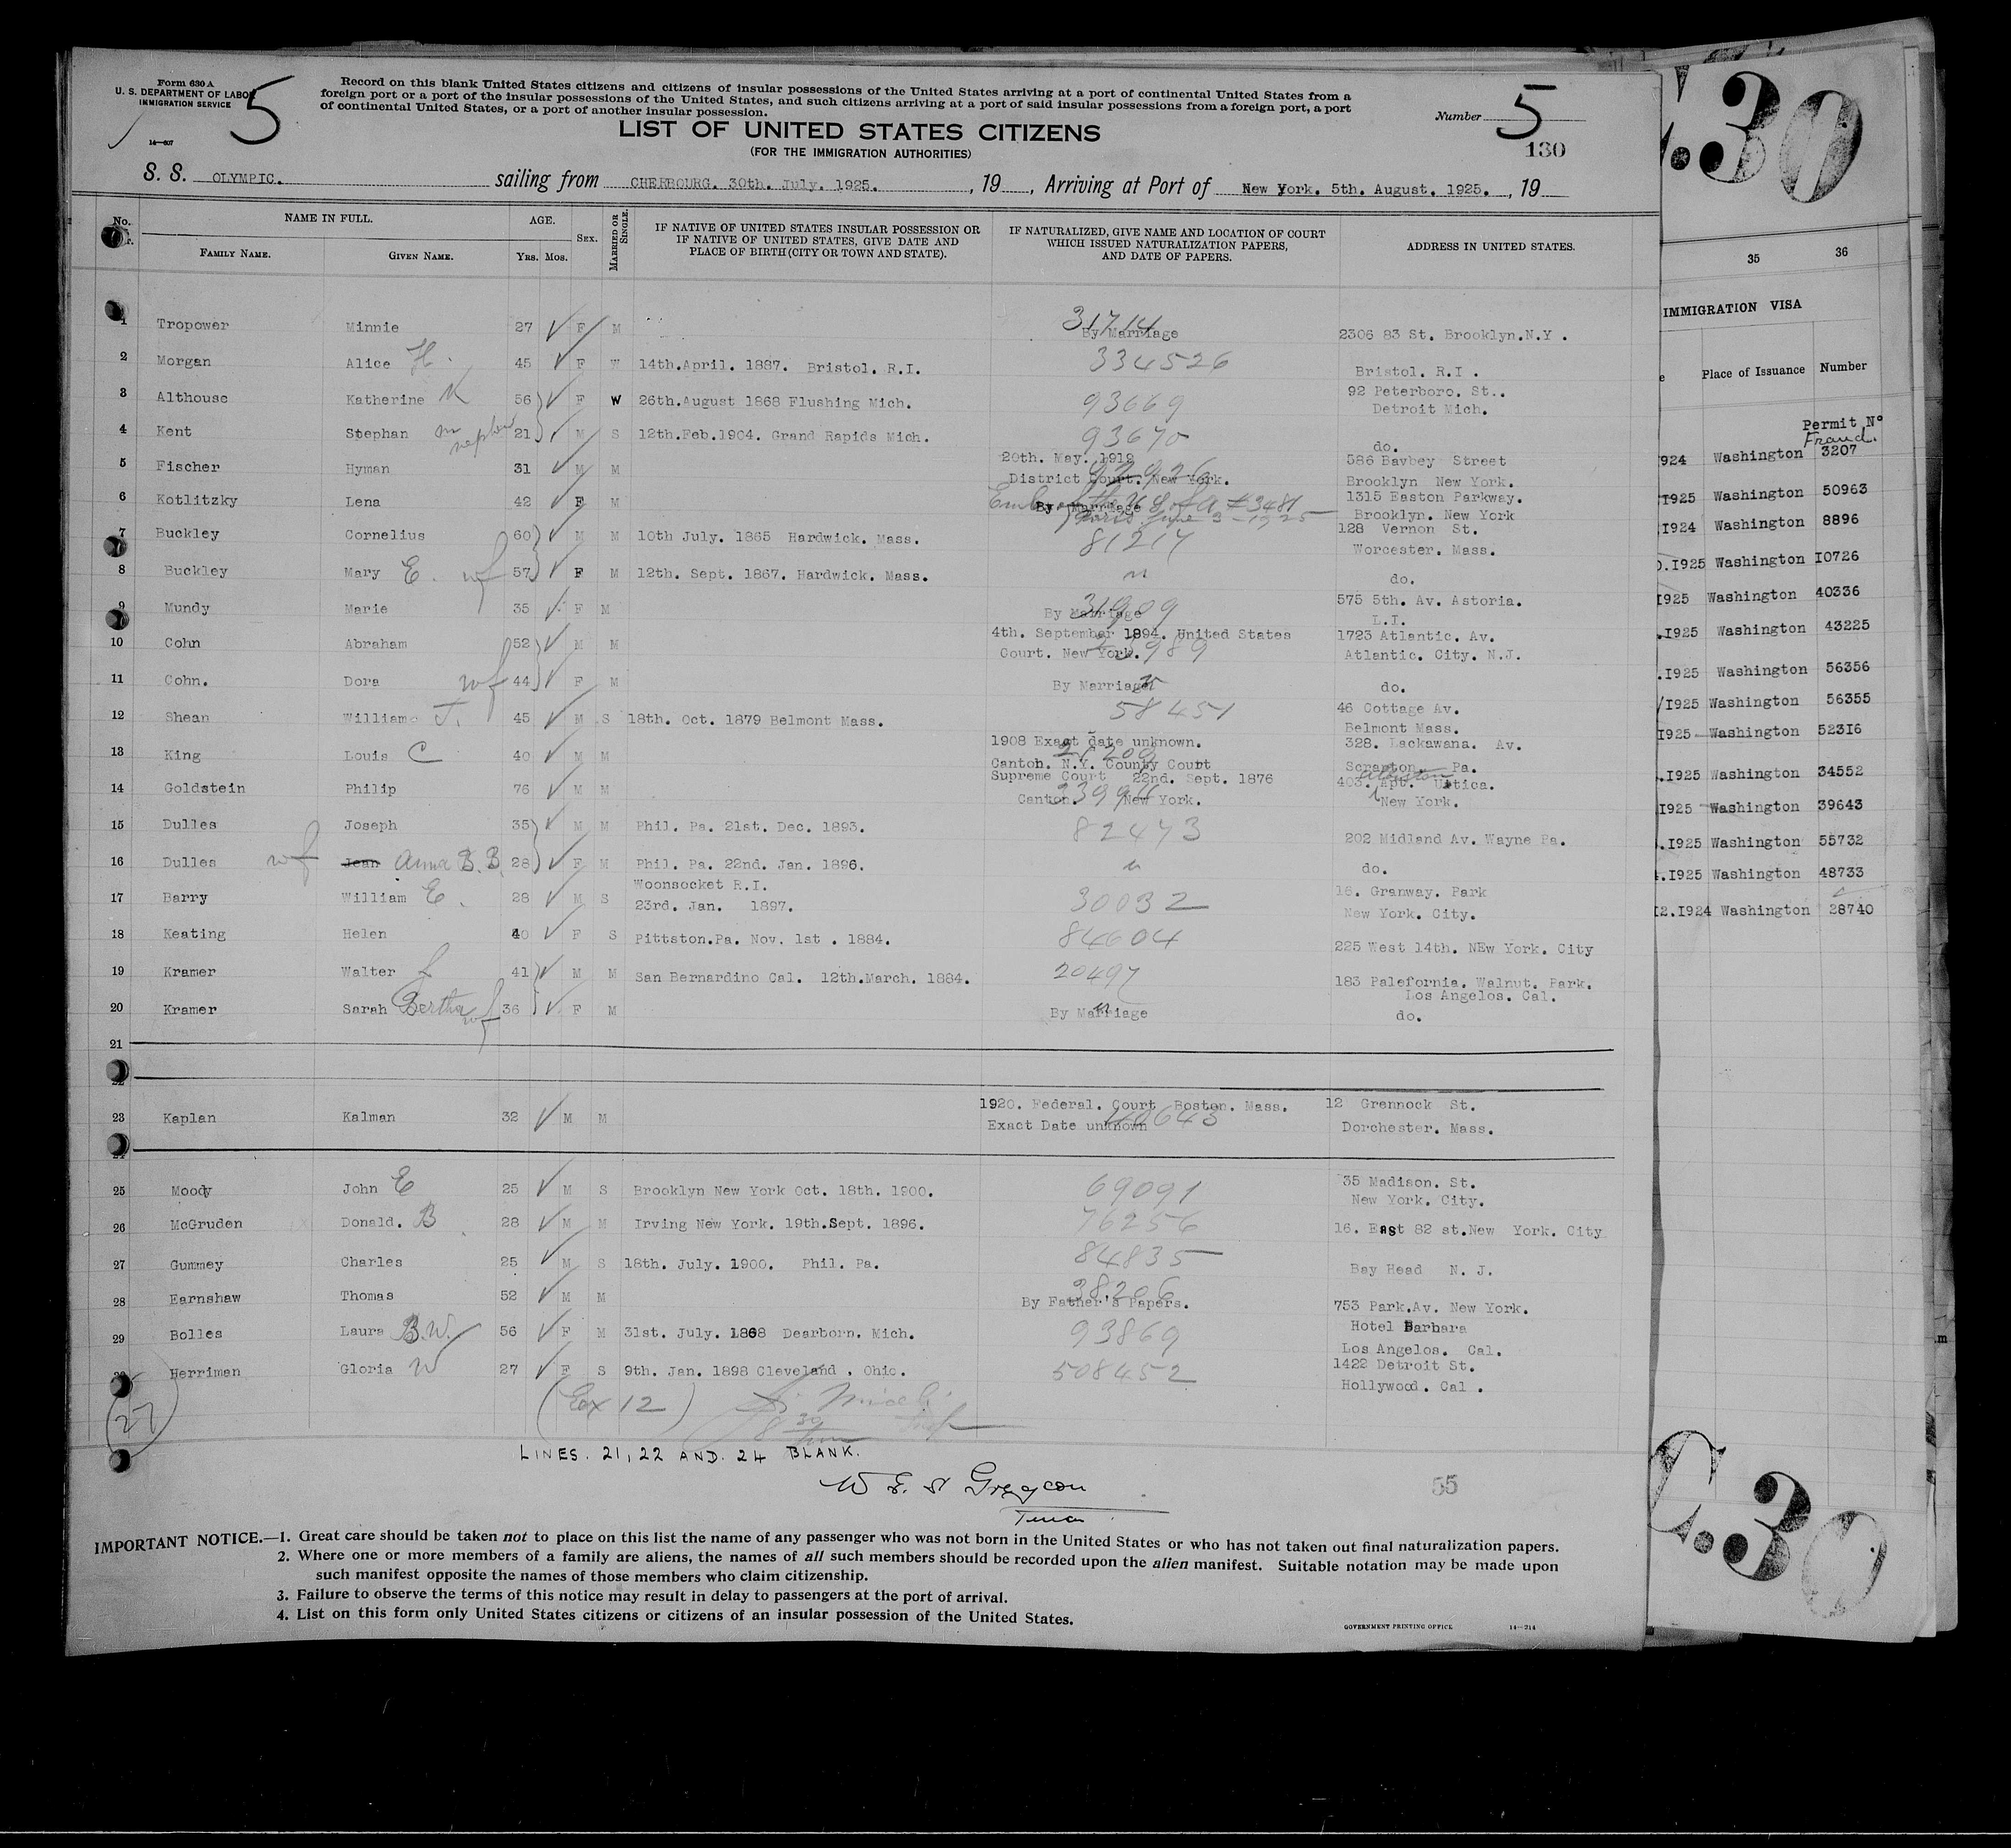 Form 630 A
U. S. DEPARTMENT OF LABOR
IMMIGRATION SERVICE
14—607
5
Record on this blank United States citizens and citizens of insular possessions of the United States arriving at a port of continental United States from a
foreign port or a port of the insular possessions of the United States, and such citizens arriving at a port of said insular possessions from a foreign port, a port
of continental United States, or a port of another insular possession.
Number 5
130
LIST OF UNITED STATES CITIZENS
(FOR THE IMMIGRATION AUTHORITIES)
S. S. OLYMPIC. sailing from CHERBOURG. 30th. July. 1925. , 19 , Arriving at Port of New York. 5th. August. 1925. , 19
No. NAME IN FULL. AGE. SEX. MARRIED OR SINGLE. IF NATIVE OF UNITED STATES INSULAR POSSESSION OR IF NATIVE OF UNITED STATES, GIVE DATE AND PLACE OF BIRTH (CITY OR TOWN AND STATE). IF NATURALIZED, GIVE NAME AND LOCATION OF COURT WHICH ISSUED NATURALIZATION PAPERS, AND DATE OF PAPERS. ADDRESS IN UNITED STATES.
FAMILY NAME. GIVEN NAME. Yrs. Mos.
1 Tropower Minnie 27 F M 31714 By Marriage 2306 83 St. Brooklyn.N.Y .
2 Morgan Alice H. 45 F W 14th.April. 1887. Bristol. R.I. 334526 Bristol. R.I .
3 Althouse Katherine K 56 F W 26th.August 1868 Flushing Mich. 93669 92 Peterboro. St.. Detroit Mich.
4 Kent Stephan m nephew 21 M S 12th.Feb.1904. Grand Rapids Mich. 93670 do.
5 Fischer Hyman 31 M M 20th. May. 1919 District Court. New York. 92926 586 Bavbey Street Brooklyn New York.
6 Kotlitzky Lena 42 F M By Marriage Emb of the U S of A #3481 Paris June 3-1925 1315 Easton Parkway. Brooklyn. New York
7 Buckley Cornelius 60 M M 10th July. 1865 Hardwick. Mass. 81217 128 Vernon St. Worcester. Mass.
8 Buckley Mary E. wf 57 F M 12th. Sept. 1867. Hardwick. Mass. " do.
9 Mundy Marie 35 F M By Marriage 31909 575 5th. Av. Astoria. L.I.
10 Cohn Abraham 52 M M 4th. September 1894. United States Court. New York. 1723 Atlantic. Av. Atlantic. City. N.J.
11 Cohn. Dora wf 44 F M By Marriage do.
12 Shean William J. 45 M S 18th. Oct. 1879 Belmont Mass. 58451 46 Cottage Av. Belmont Mass.
13 King Louis C 40 M M 1908 Exact date unknown. Canton. N.Y. County Court 328. Lackawana. Av. Scranton. Pa.
14 Goldstein Philip 76 M M Supreme Court 22nd. Sept. 1876 Canton. New York. 403. Apt. Uttica. New York.
15 Dulles Joseph 35 M M Phil. Pa. 21st. Dec. 1893. 82473 202 Midland Av. Wayne Pa.
16 Dulles wf Jean Anna B.B. 28 F M Phil. Pa. 22nd. Jan. 1896. " do.
17 Barry William E. 28 M S Woonsocket R.I. 23rd. Jan. 1897. 30032 16. Granway. Park New York. City.
18 Keating Helen 40 F S Pittston.Pa. Nov. 1st . 1884. 84604 225 West 14th. NEw York. City
19 Kramer Walter L 41 M M San Bernardino Cal. 12th.March. 1884. 20497 183 Palefornia. Walnut. Park. Los Angelos. Cal.
20 Kramer Sarah Bertha wf 36 F M By Marriage " do.
21
22
23 Kaplan Kalman 32 M M 1920. Federal. Court Boston. Mass. Exact Date unknown 40643 12 Grennock St. Dorchester. Mass.
24
25 Moody John E 25 M S Brooklyn New York Oct. 18th. 1900. 69091 35 Madison. St. New York. City.
26 McGruden Donald. B 28 M M Irving New York. 19th.Sept. 1896. 76256 16. East 82 st.New York. City
27 Gummey Charles 25 M S 18th. July. 1900. Phil. Pa. 84835 Bay Head N. J.
28 Earnshaw Thomas 52 M M By Father's Papers. 38206 753 Park.Av. New York.
29 Bolles Laura B.W. 56 F M 31st. July. 1868 Dearborn. Mich. 93869 Hotel Barbara Los Angelos. Cal.
30 Herriman Gloria W 27 F S 9th. Jan. 1898 Cleveland , Ohio. 508452 1422 Detroit St. Hollywood. Cal .
(27)
(Ex 12)
LINES. 21, 22 AND. 24 BLANK.
55
IMPORTANT NOTICE.—1. Great care should be taken not to place on this list the name of any passenger who was not born in the United States or who has not taken out final naturalization papers.
2. Where one or more members of a family are aliens, the names of all such members should be recorded upon the alien manifest. Suitable notation may be made upon
such manifest opposite the names of those members who claim citizenship.
3. Failure to observe the terms of this notice may result in delay to passengers at the port of arrival.
4. List on this form only United States citizens or citizens of an insular possession of the United States.
GOVERNMENT PRINTING OFFICE 14—214
.30
35 36
IMMIGRATION VISA
Place of Issuance Number
Permit No
Fraud.
1924 Washington 3207
1925 Washington 50963
1924 Washington 8896
I925 Washington I0726
I925 Washington 40336
.I925 Washington 43225
.I925 Washington 56356
I925 Washington 56355
I925 Washington 523I6
.I925 Washington 34552
I925 Washington 39643
.I925 Washington 55732
.I925 Washington 48733
I2.I924 Washington 28740
C.30